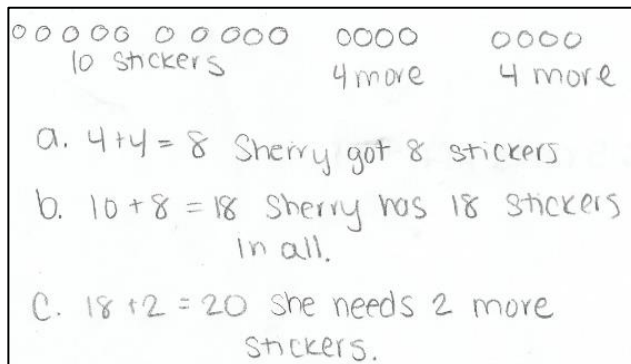 10 stickers
4 more
4 more
a. 4+4 = 8 Sherry got 8 stickers
b. 10 + 8 = 18 Sherry has 18 stickers
in all.
C. 18 + 2 = 20 She needs 2 more
stickers.